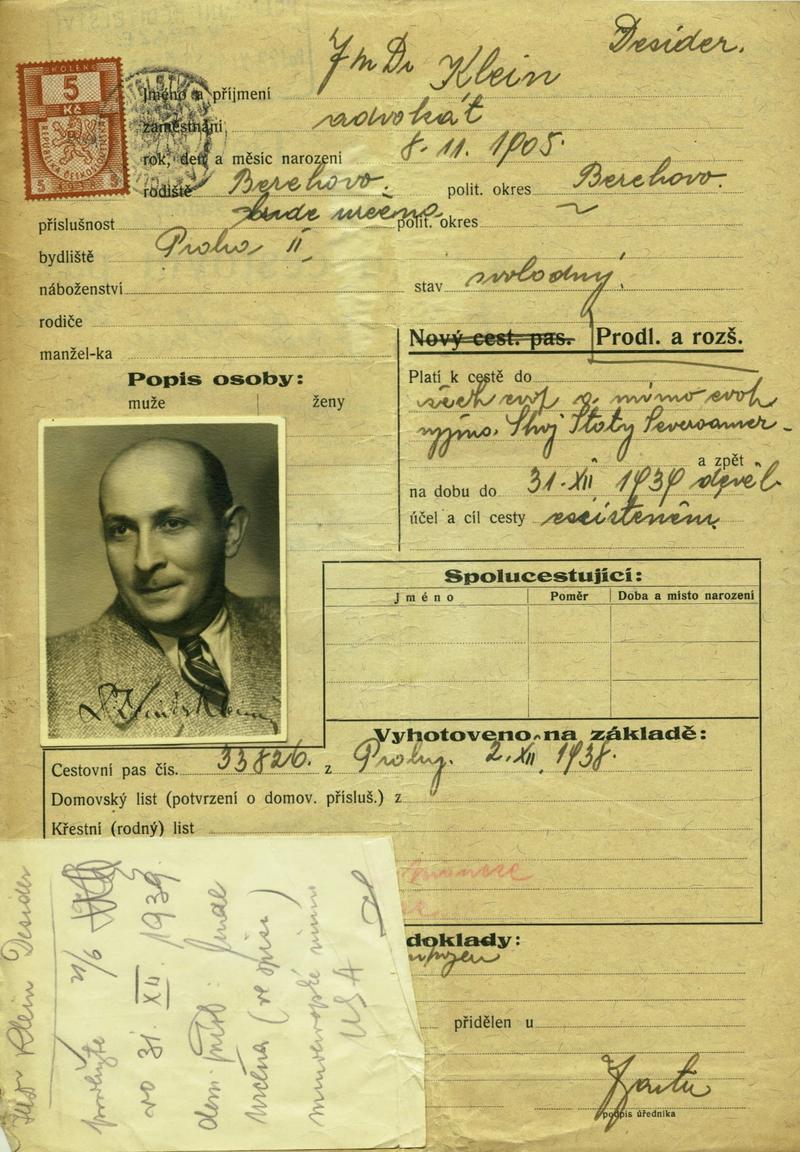 JUDr Klein Desider.
5
Kč
REPUBLIKA ČESKOSLOVENSKÁ
Jméno a příjmení
zaměstnání advokát
rok, den a měsíc narození 8. 11. 1905.
rodiště Berehovo. polit. okres Berehovo.
příslušnost bude určena polit. okres
bydliště Praha II
náboženství stav svobodný.
rodiče
manžel-ka
Nový cest. pas. Prodl. a rozš.
Popis osoby:
muže ženy
Platí k cestě do
všech evr. a mimo evr.
Spoj. Státy Severoamer-
a zpět
na dobu do 31. XII 1939
účel a cíl cesty
Spolucestující:
Jméno Poměr Doba a místo narození
Vyhotoveno na základě:
Cestovní pas čís. 33826. z Prahy. 2. XII. 1938.
Domovský list (potvrzení o domov. přísluš.) z
Křestní (rodný) list
doklady:
přidělen u
podpis úředníka
JUDr Klein Desider
21/6
do 31 XII 1939
dom. přísl. bude
určena (ve spise)
mimoevropské mimo
USA